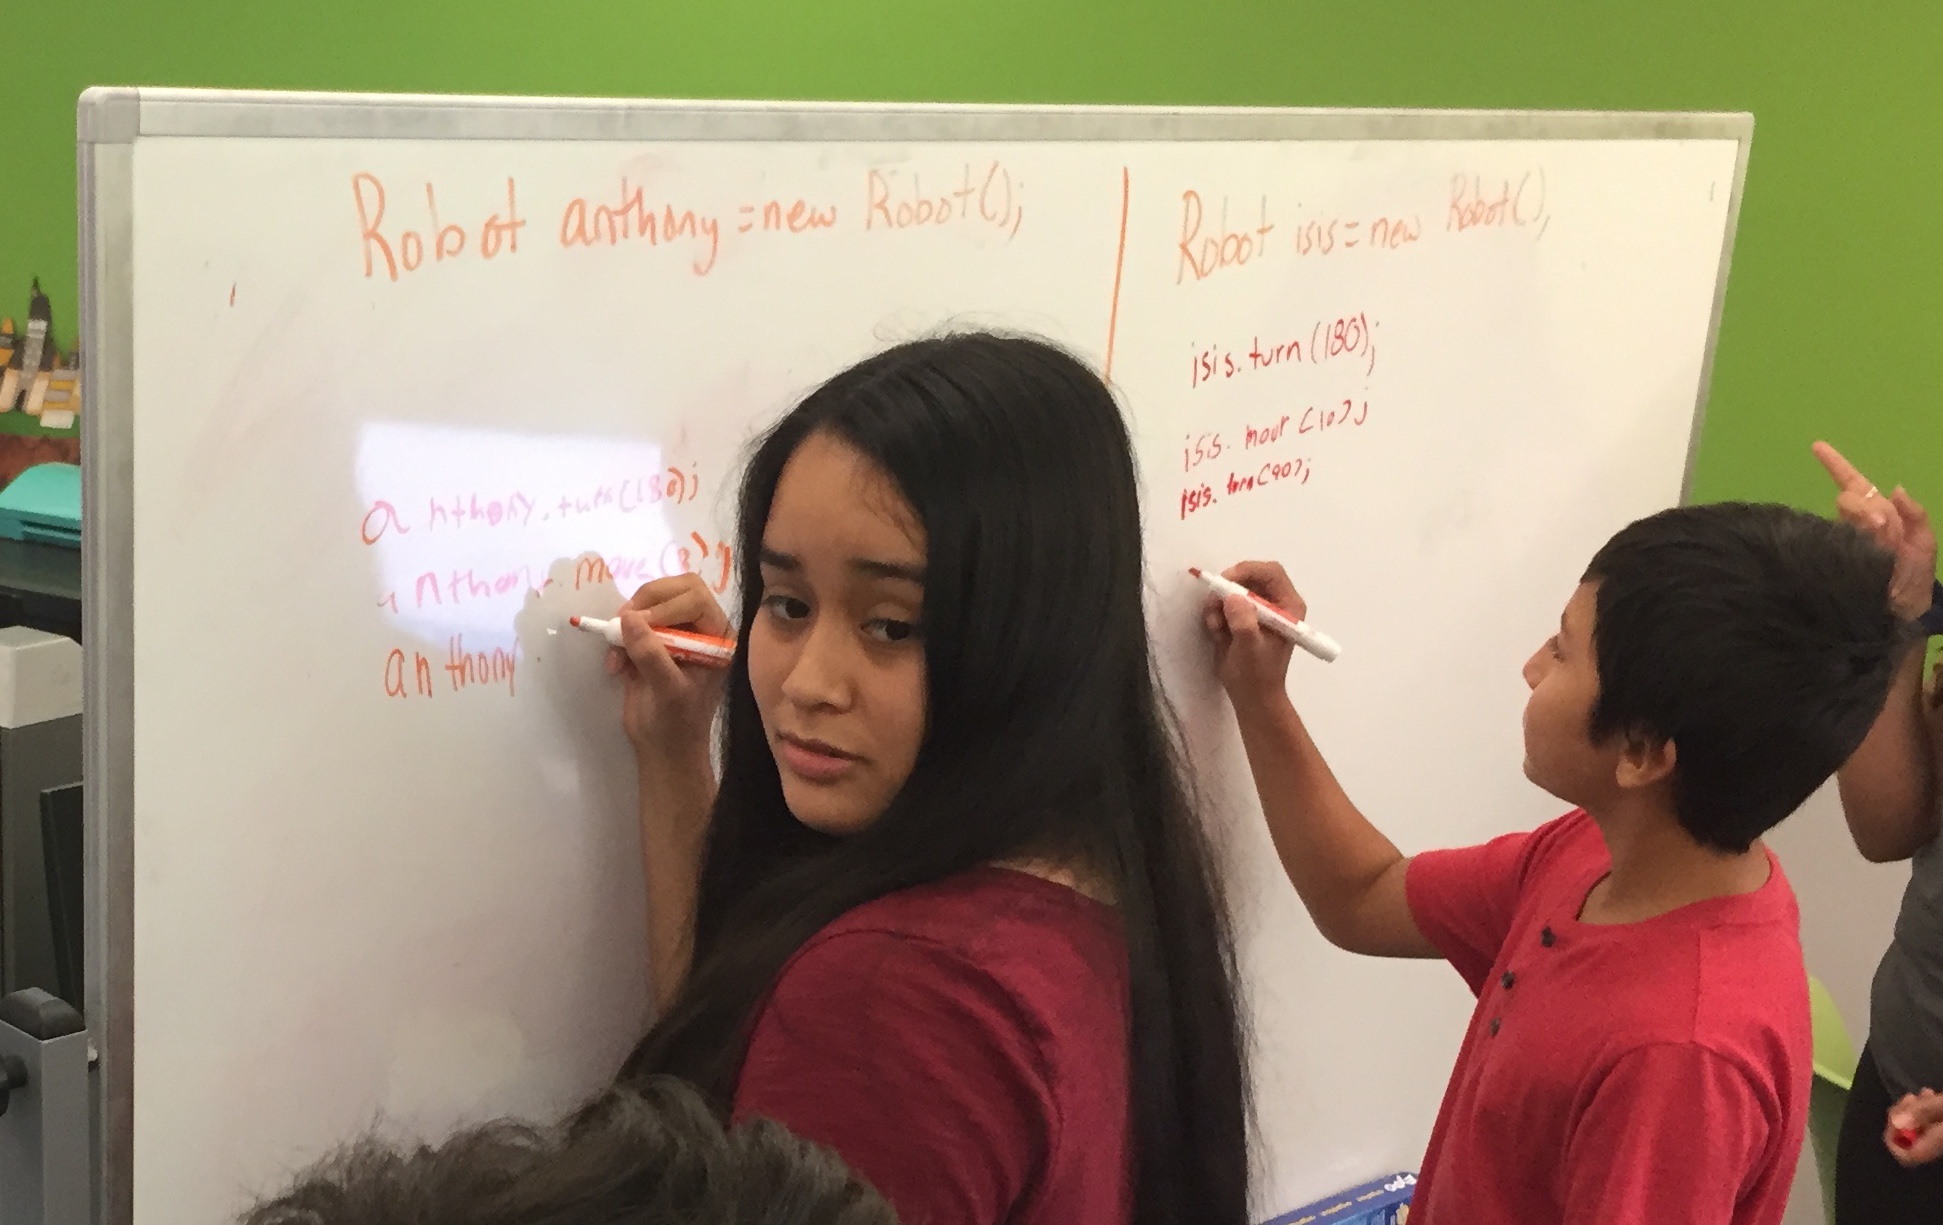 Robot anthony = new Robot();
anthony.turn(180);
anthony. move(8);
anthony.
Robot isis = new Robot();
isis.turn(180);
isis. mour (10);
isis. turn(90);